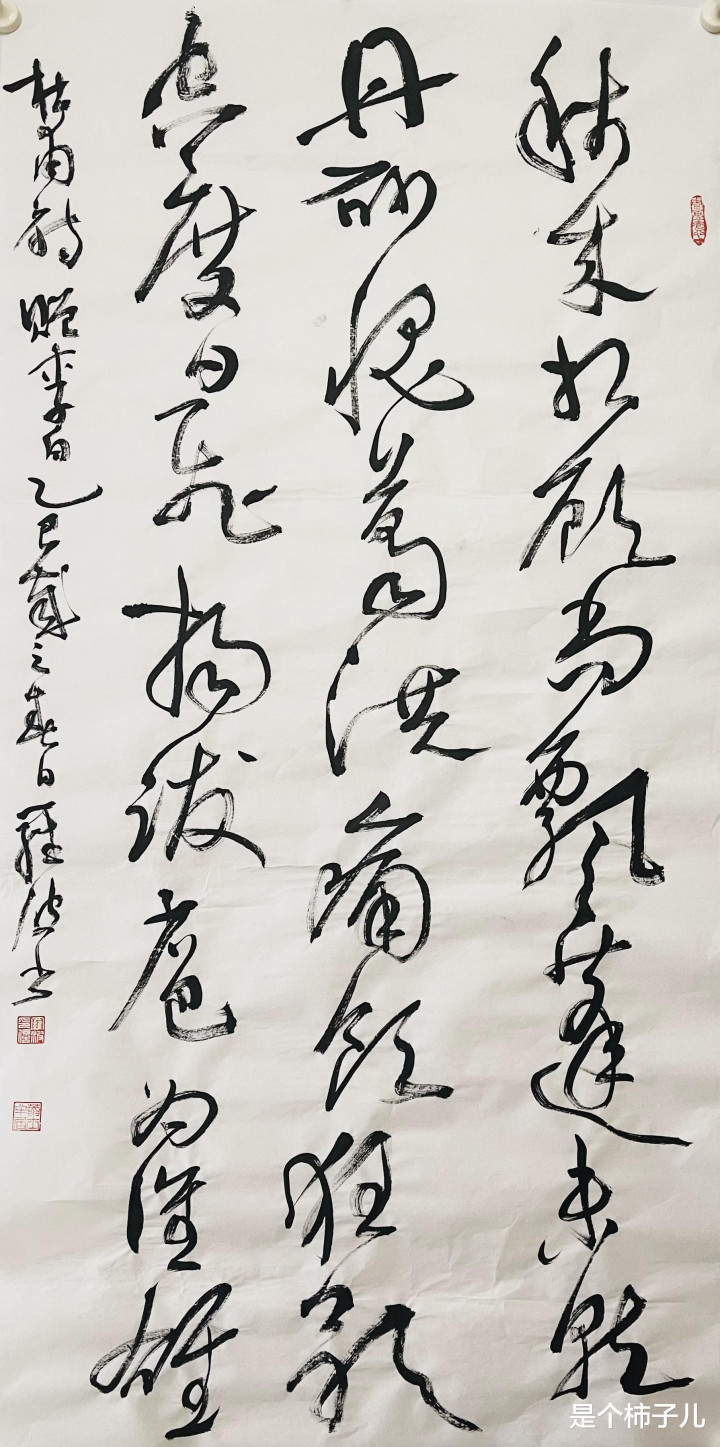 秋来相顾尚飘蓬未就
丹砂愧葛洪痛饮狂歌
空度日飞扬跋扈为谁雄
杜甫诗赠李白乙巳岁之春日罗波书
是个柿子儿